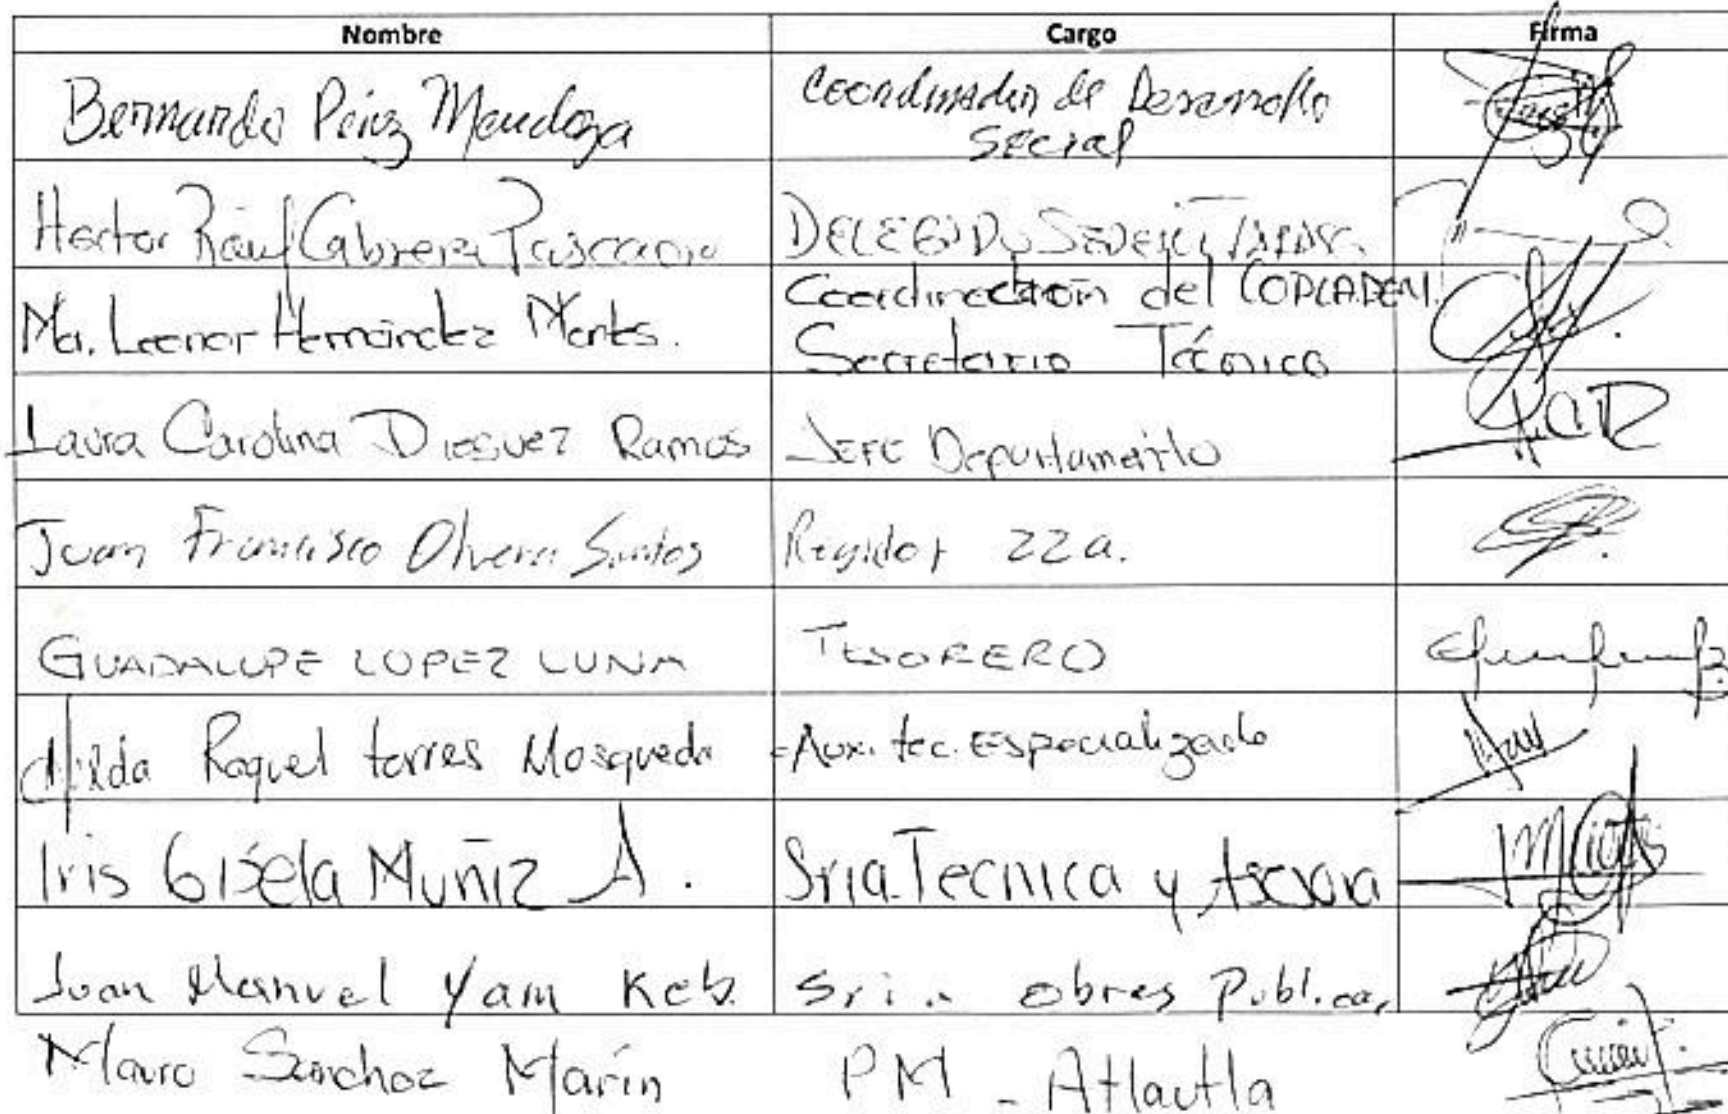 Nombre Cargo Firma
Bernardo Pérez Mendoza Coordinador de Desarrollo
Social
Hector Raúl Cabrera Pascacio DELEGADO
Ma. Leonor Hernández Montes. Coordinación del COPLADEM.
Secretario Técnico
Laura Carolina Dieguez Ramos Jefe Departamento
Juan Francisco Olvera Santos Regidor 22a.
GUADALUPE LOPEZ LUNA TESORERO
Raquel torres Mosqueda Aux. tec. Especializado
Iris Gisela Muñiz A. Sria. Tecnica y Asesora
Juan Manuel Yam Keb. Sria. Obras Publicas
Mauro Sanchez Marín PM - Atlautla